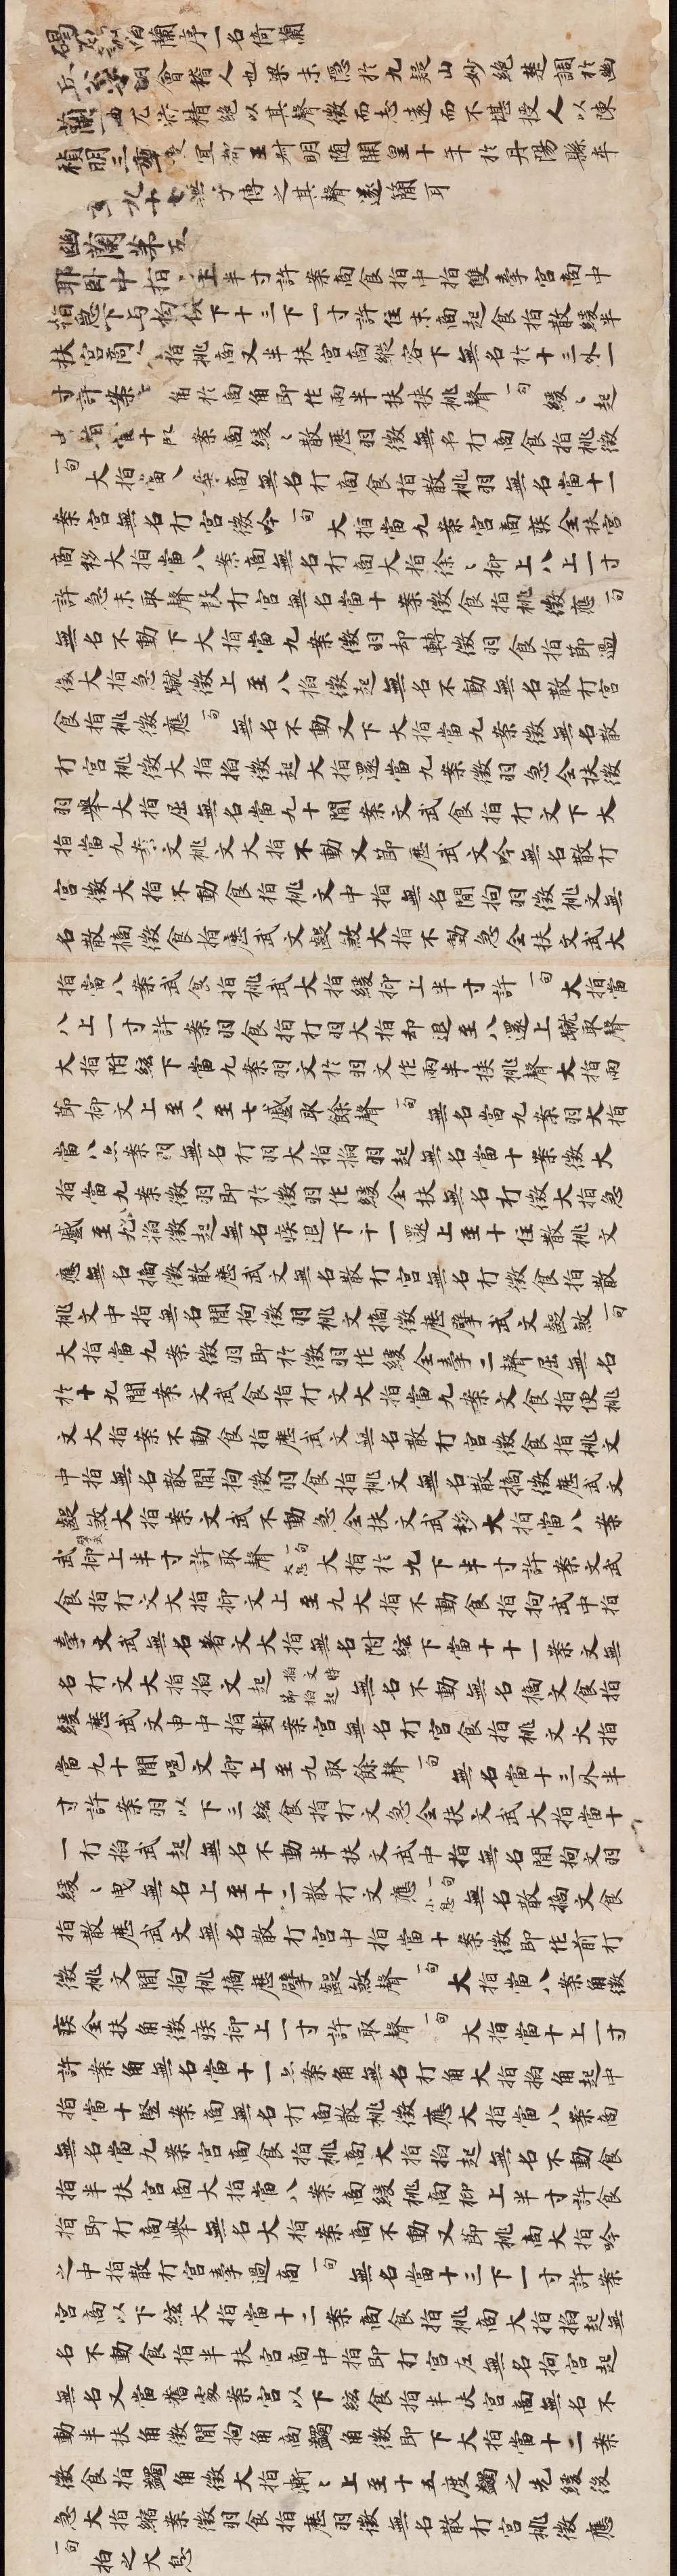 碣石調幽蘭序一名倚蘭
丘公字明會稽人也梁末隱於九疑山妙絕楚調於幽
蘭一曲尤特精絕以其聲微而志遠而不堪授人以陳
禎明三年授宜都王叔明隨開皇十年於丹陽縣卒
九十七無子傳之其聲遂簡耳
幽蘭第五
耶臥中指上半寸許案商食指中指雙牽宮商中
指急下与拘俱下十三下一寸許住末商起食指散緩半
扶宮商食指挑商又半扶宮商縱容下無名於十三外一
寸許案商角於商角即作兩半扶挾挑聲一句緩緩起
無名十案商緩緩散歷羽徵無名打商食指挑徵
一句大指當案商無名打商食指散挑羽無名當十一
案宮無名打宮徵吟一句大指當九案宮商疾全扶宮
商移大指當八案商無名打商大指徐徐抑上八上一寸
許急末取聲散打宮無名當十案徵食指挑徵應一句
無名不動下大指當九案徵羽却轉徵羽食指節過
後大指急蹴徵上至八掐徵起無名不動無名散打宮
食指挑徵應一句無名不動又下大指當九案徵無名散
打宮挑徵大指掐徵起大指還當九案徵羽急全扶徵
羽舉大指屈無名當九十間案文武食指打文下大
指當九案文挑文大指不動又節歷武文吟無名散打
宮徵大指不動食指挑文中指無名間拘羽徵挑文無
名散摘徵食指歷武文齪煞大指不動急全扶文武大
指當八案武食指挑武大指緩抑上半寸許一句大指當
八上一寸許案羽食指打羽大指却退至八還上蹴取聲
大指附絃下當九案羽文於羽文作兩半挾挑聲大指兩
節抑文上至八至七蹙取餘聲一句無名當九案羽大指
當八案羽無名打羽大指掐羽起無名當十案徵大
指當九案徵羽即於徵羽作緩全扶無名打徵大指急
蹙至八掐徵起無名疾退下十一還上至十住散挑文
應無名摘徵散歷武文無名散打宮無名打徵食指散
挑文中指無名間拘徵羽挑文摘徵歷擘武文齪煞一句
大指當九案徵羽即於徵羽作緩全牽二聲屈無名
於十九間案文武食指打文大指當九案文食指便挑
文大指案不動食指歷武文無名散打宮徵食指挑文
中指無名散間拘徵羽食指挑文無名散摘徵歷武文
齪煞大指案文武不動急全扶文武移大指當八案
武抑上半寸許取聲一句大指於九下半寸許案文武
食指打文大指抑文上至九大指不動食指拘武中指
牽文武無名著文大指無名附絃下當十十一案文無
名打文大指掐文起無名不動無名摘文食指
緩歷武文申中指對案宮無名打宮食指挑文大指
當九十間吧文抑上至九取餘聲一句無名當十三外半
寸許案羽以下三絃食指打文急全扶文武大指當十
一打掐武起無名不動半扶文武中指無名間拘文羽
緩緩曳無名上至十二散打文應一句小息無名散摘文食
指散歷武文無名散打宮中指當十案徵即作前打
徵挑文間拘挑摘歷擘齪煞聲一句大指當八案角徵
疾全扶角徵疾抑上一寸許取聲一句大指當十上一寸
許案角無名當十一案角無名打角大指掐角起中
指當十豎案商無名打商散挑徵應大指當八案商
無名當九案宮商食指挑商大指掐起無名不動食
指半扶宮商大指當八案商緩挑商抑上半寸許食
指即打商舉無名大指案商不動又節挑商大指吟
之中指散打宮牽過商一句無名當十三下一寸許案
宮商以下絃大指當十二案商食指挑商大指掐起無
名不動食指半扶宮商中指即打宮左無名拘宮起
無名又當舊處案宮以下絃食指半扶宮商無名不
動半扶角徵間拘角商蠲角徵即下大指當十二案
徵食指蠲角徵大指漸漸上至十五度蠲之先緩後
急大指縮案徵羽食指歷羽徵無名散打宮挑徵應
一句拍之大息